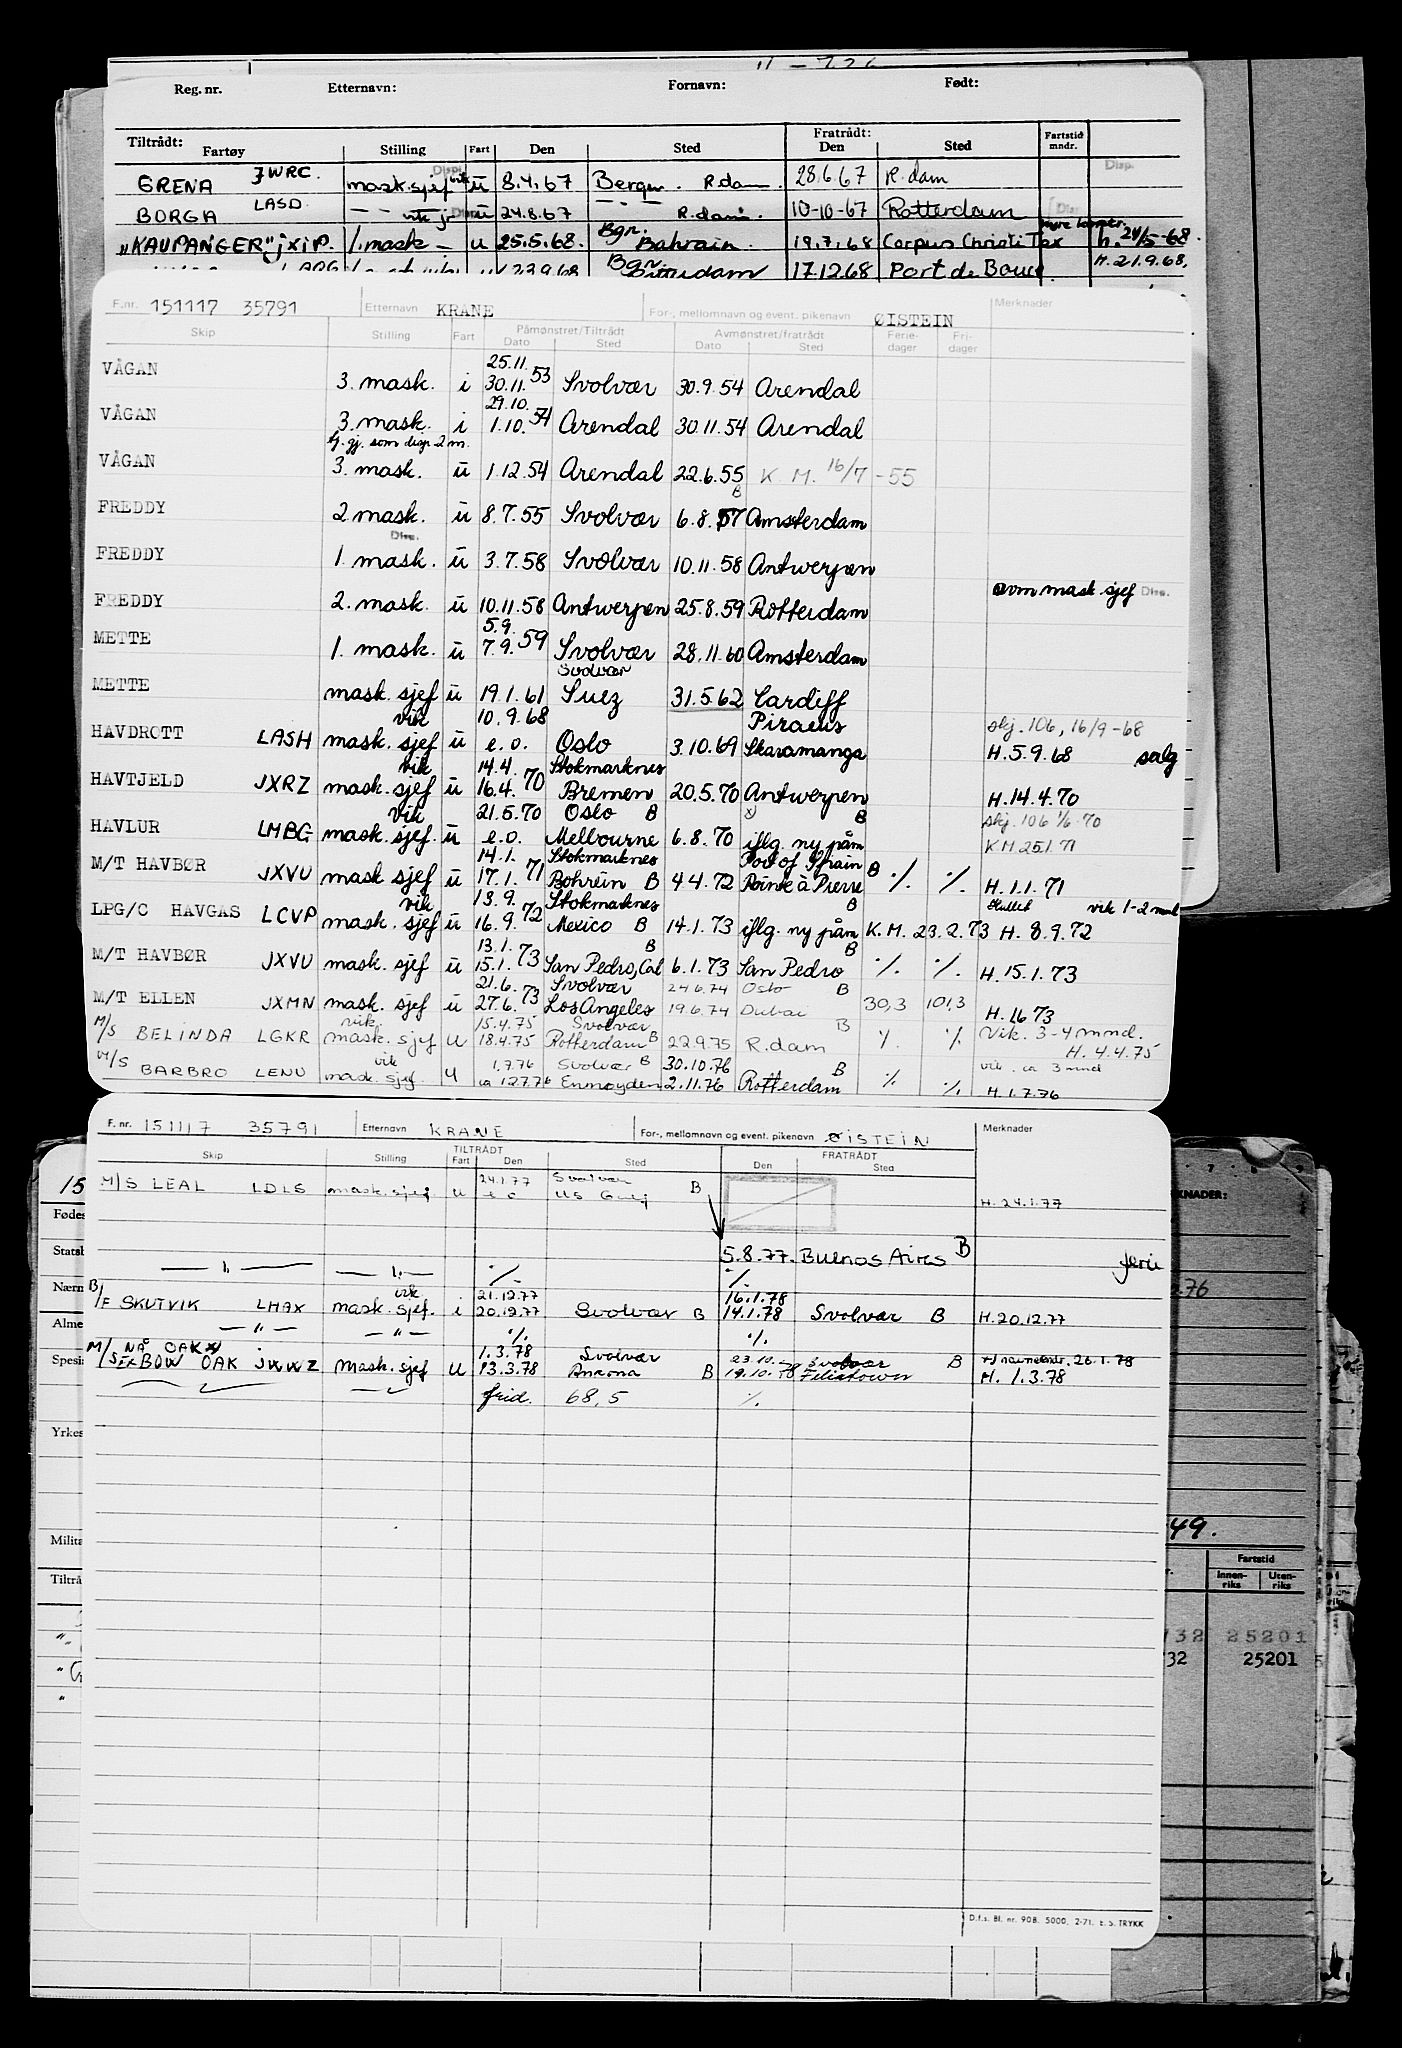 Reg. nr. Etternavn: Fornavn: Født:
Tiltrådt: Fratrådt: Fartstid mndr.
Fartøy Stilling Fart Den Sted Den Sted
GRENA JWRC. mask.sjef vik ü 8.4.67 Bergen. R.dam. 28.6.67 R.dam Disp.
BORGA LASD — — vik ü 24.8.67 — " — R.dam. 10-10-67 Rotterdam
"KAUPANGER" jxip. 1. mask — u 25.5.68. Bgr. Bahrain. 19.7.68 Corpus Christi Tex h. 24/5-68.
17.12.68 Port de Bouc H. 21.9.68,
F.nr. 151117 35791 Etternavn KRANE For-, mellomnavn og event. pikenavn ØISTEIN Merknader
Skip Stilling Fart Påmønstret/Tiltrådt Dato Sted Avmønstret/fratrådt Dato Sted Ferie-dager Fri-dager
VÅGAN 3. mask. i 25.11. 30.11.53 Svolvær 30.9.54 Arendal
VÅGAN 3. mask. i 29.10. 1.10.54 Arendal 30.11.54 Arendal
tj. gj. som disp. 2 m.
VÅGAN 3. mask. ü 1.12.54 Arendal 22.6.55 B K M. 16/7-55
FREDDY 2 mask. ü 8.7.55 Svolvær 6.8.57 Amsterdam
FREDDY Disp. 1. mask. ü 3.7.58 Svolvær 10.11.58 Antwerpen
FREDDY 2. mask. ü 10.11.58 Antwerpen 25.8.59 Rotterdam avm mask sjef Disp.
METTE 1. mask. ü 5.9. 7.9.59 Svolvær 28.11.60 Amsterdam
METTE mask. sjef ü 19.1.61 Svolvær Suez 31.5.62 Cardiff
HAVDROTT LASH vik mask. sjef ü 10.9.68 e.o. Oslo 3.10.69 Piraeus Skaramanga skj. 106, 16/9-68 H.5.9.68 salg
HAVTJELD JXRZ vik mask. sjef ü 14.4. 16.4.70 Stokmarknes Bremen 20.5.70 Antwerpen H.14.4.70
HAVLUR LMBG vik mask. sjef. ü 21.5.70 e.o. Oslo B Melbourne 6.8.70 B iflg. ny påm skj. 106 1/6 70 K M 25.1.71
M/T HAVBØR JXVU mask. sjef ü 14.1. 17.1.71 Stokmarknes Bahrein B 4.4.72 Port of Spain Pointe à Pierre B ٪ ٪ H. 1.1.71
LPG/C HAVGAS LCVP vik mask. sjef ü 13.9. 16.9.72 Stokmarknes Mexico B 14.1.73 B iflg. ny påm K.M. 23.2.73 H. 8.9.72 vik 1-2 mnd
M/T HAVBØR JXVU mask. sjef ü 13.1. 15.1.73 B San Pedro, Cal 6.1.73 B San Pedro ٪ ٪ H. 15.1.73
M/T ELLEN JXMN mask. sjef ü 21.6. 27.6.73 Svolvær Los Angeles 24.6.74 19.6.74 Oslo Dubai B 30,3 101,3 H. 1 6 73
M/S BELINDA LGKR vik. mask. sjef u 15.4.75 18.4.75 Svolvær Rotterdam B 22.9.75 R.dam B ٪ ٪ Vik. 3-4 mnd. H. 4.4.75
M/S BARBRO LENU vik mask. sjef. u 1.7.76 ca 12.7.76 Svolvær B Enmøyden 30.10.76 2.11.76 Rotterdam B ٪ ٪ vik. ca 3 mnd H. 1.7.76
F. nr. 151117 35791 Etternavn KRANE For-, mellomnavn og event. pikenavn ØISTEIN Merknader
Skip Stilling TILTRÅDT Fart Den Sted FRATRÅDT Den Sted
M/S LEAL LDLS mask.sjef u 24.1.77 e o Svolvær US Gulf B H. 24.1.77
5.8.77. Buenos Aires B ferie
— " — — " — ٪ ٪
B/F SKUTVIK LMAX vik mask. sjef. i 21.12.77 20.12.77 Svolvær B 16.1.78 14.1.78 Svolvær B H. 20.12.77
— " — — " — ٪ ٪
M/S NÅ OAK x) EX BOW OAK JWWZ mask. sjef u 1.3.78 13.3.78 Svolvær Ancona B 23.10. 19.10.78 Svolvær B x) navneendr. 26.1.78 H. 1.3.78
frid. 68,5 ٪
15
Fødes
Statsb
Nærm
Alme
Spesia
Yrkes
Milita
Tiltrå
7 8 9
KNADER:
.76
49.
Fartstid
Innen-riks Uten-riks
/32 25201
/32 25201
D.f.s. Bl. nr. 908. 5000, 2-71. E. S. TRYKK